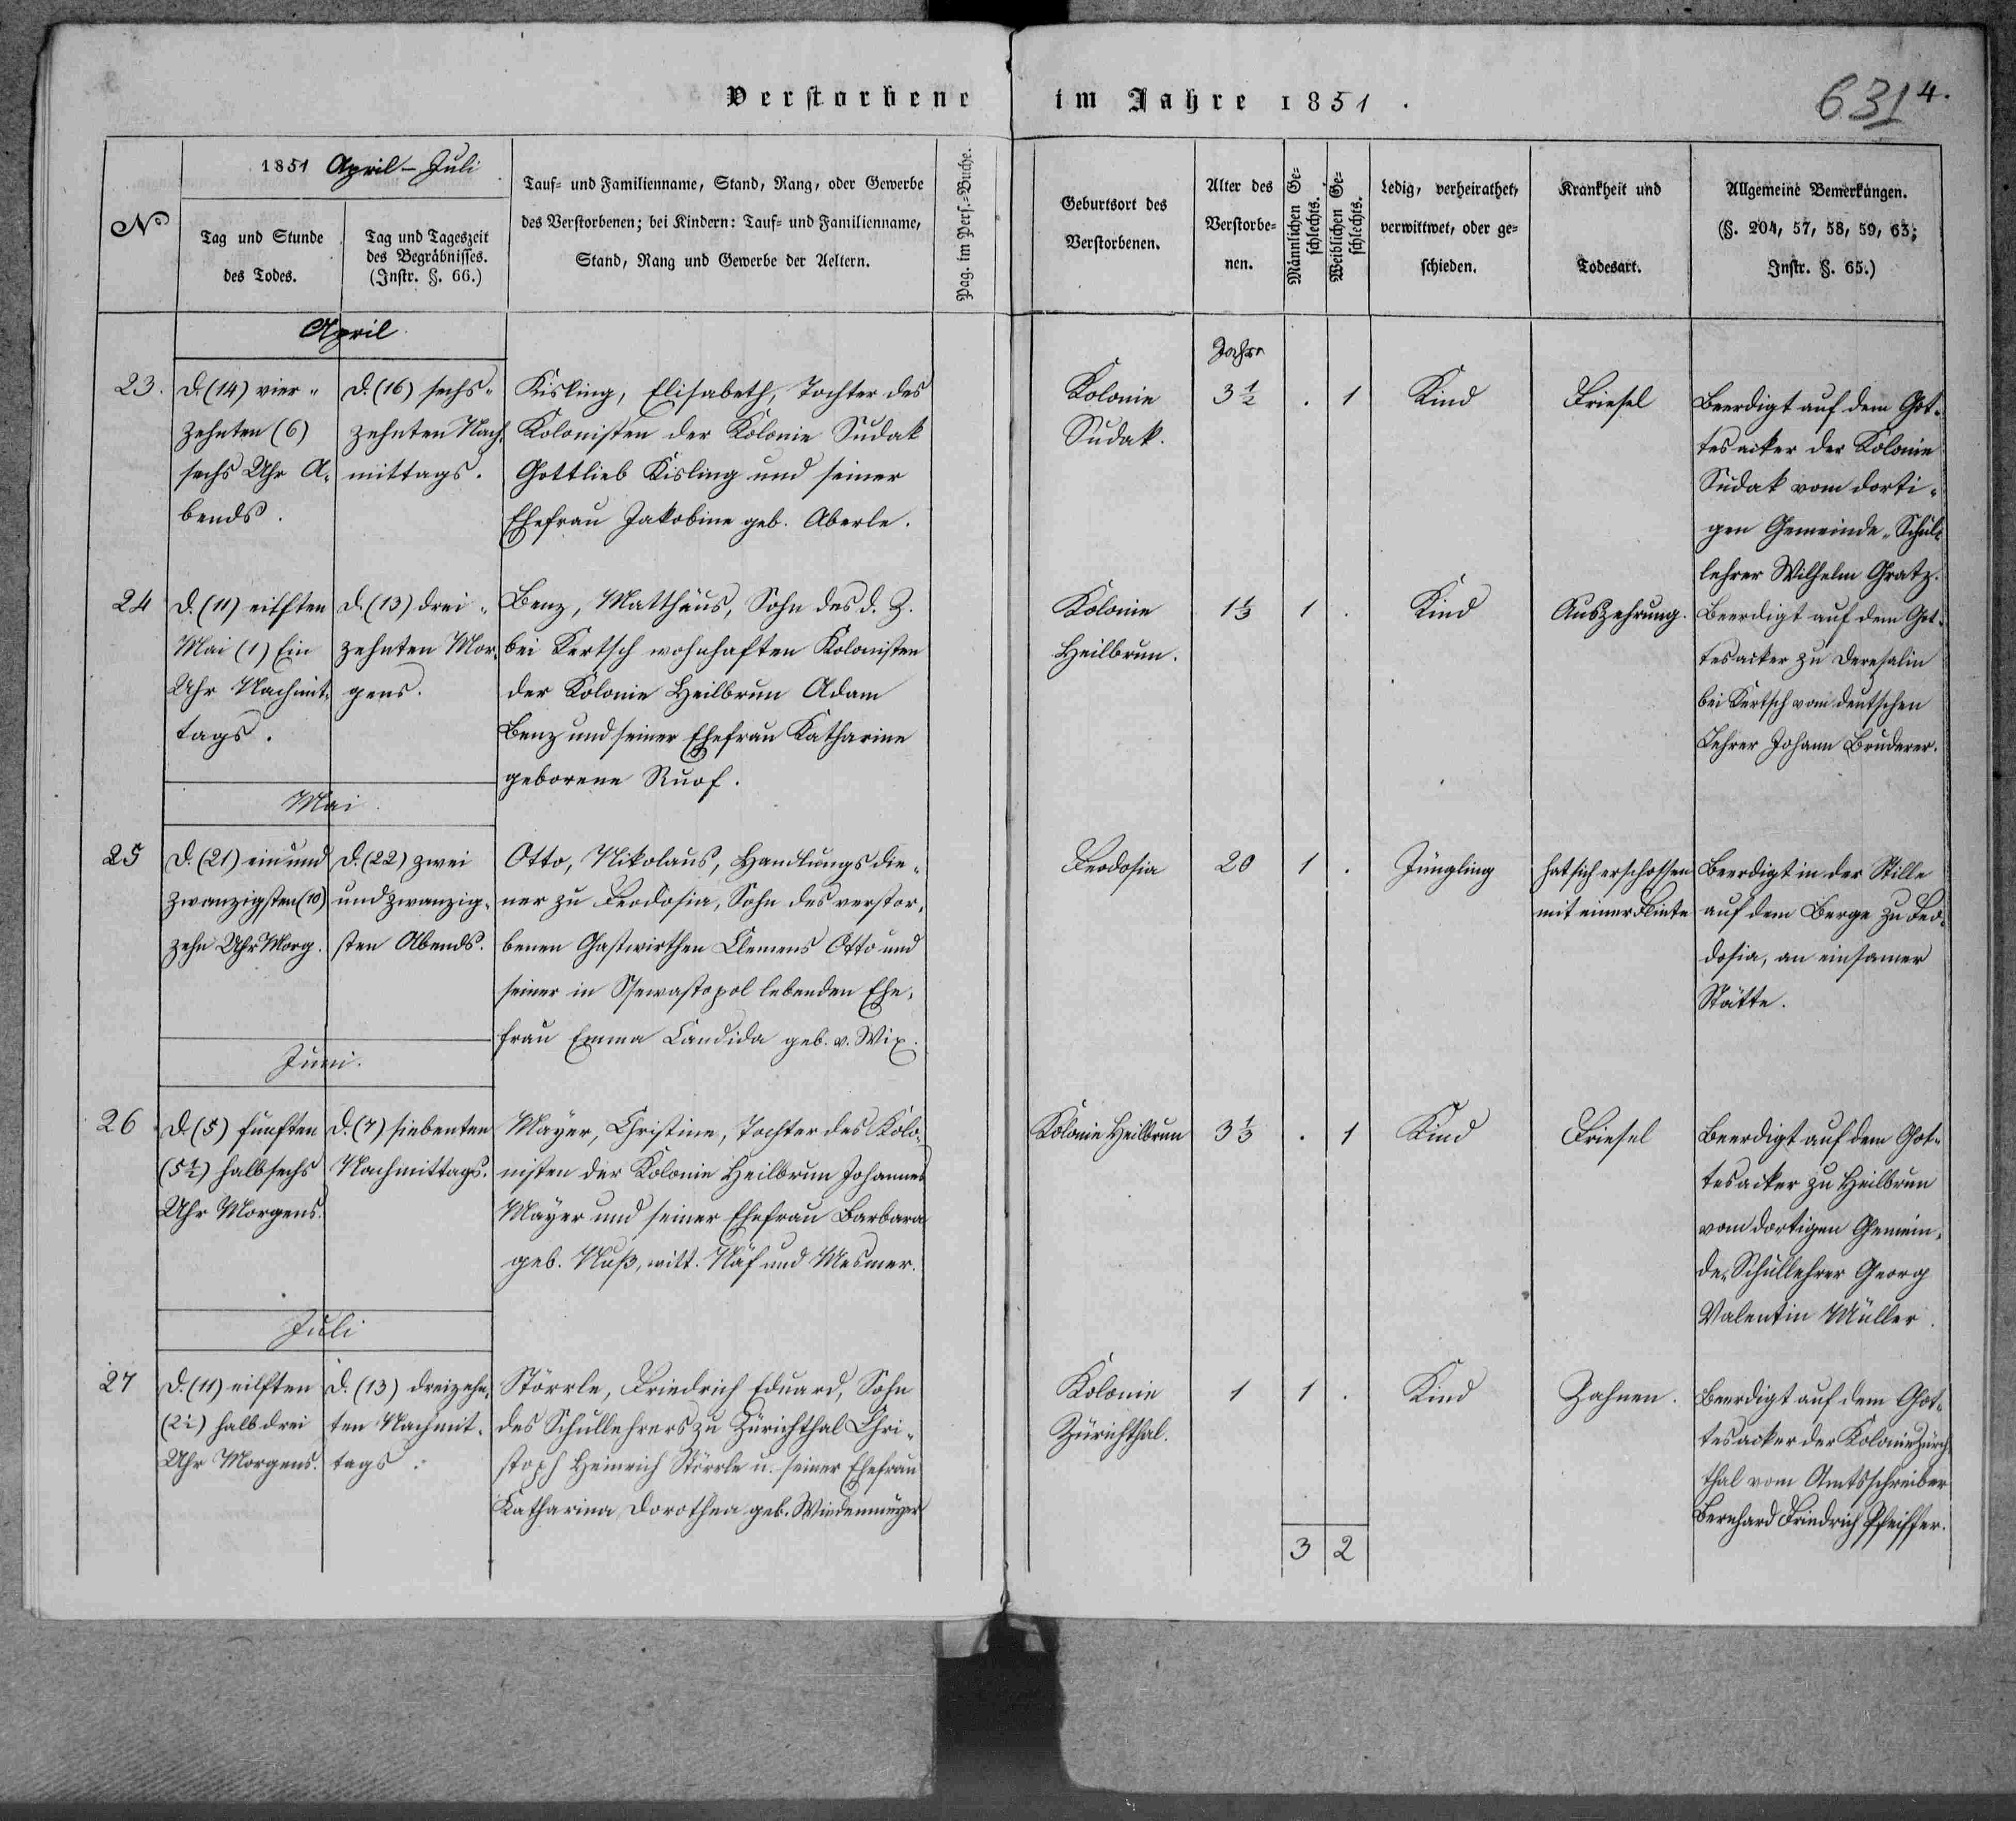 Verstorbene im Jahre 1851.
631 4.
No
1851 April - Juli
Tag und Stunde
des Todes.
Tag und Tageszeit
des Begräbnisses.
(Instr. §. 66.)
Tauf- und Familienname, Stand, Rang, oder Gewerbe
des Verstorbenen; bei Kindern: Tauf- und Familienname,
Stand, Rang und Gewerbe der Aeltern.
Pag. im Pers.-Buche.
Geburtsort des
Verstorbenen.
Alter des
Verstorbe-
nen.
Männlichen Ge-
schlechts.
Weiblichen Ge-
schlechts.
Ledig, verheirathet,
verwittwet, oder ge-
schieden.
Krankheit und
Todesart.
Allgemeine Bemerkungen.
(§. 204, 57, 58, 59, 63;
Instr. §. 65.)
April
23.
D. (14) vier-
zehnten (6)
sechs Uhr A-
bends.
D. (16) sechs-
zehnten Nach-
mittags.
Kisling, Elisabeth, Tochter des
Kolonisten der Kolonie Sudak
Gottlieb Kisling und seiner
Ehefrau Jakobine geb. Aberle.
Kolonie
Sudak.
Jahre
3 1/2
.
1
Kind
Friesel
Beerdigt auf dem Got-
tesacker der Kolonie
Sudak vom dorti-
gen Gemeinde-Schul-
lehrer Wilhelm Gratz.
24
D. (11) eilften
Mai (1) Ein
Uhr Nachmit-
tags.
D. (13) drei-
zehnten Mor-
gens.
Benz, Matthäus, Sohn des d. Z.
bei Kertsch wohnhaften Kolonisten
der Kolonie Heilbrun Adam
Benz und seiner Ehefrau Katharine
geborene Ruof.
Kolonie
Heilbrun.
1 1/3
1
.
Kind
Auszehrung.
Beerdigt auf dem Got-
tesacker zu Deresalin
bei Kertsch vom deutschen
Lehrer Johann Bruderer.
Mai.
25
D. (21) ein und
zwanzigsten (10)
zehn Uhr Morg.
D. (22) zwei
und zwanzig-
sten Abends.
Otto, Nikolaus, Handlungsdie-
ner zu Feodosia, Sohn des verstor-
benen Gastwirthen Clemens Otto und
seiner in Ssewastopol lebenden Ehe-
frau Emma Candida geb. v. Wix.
Feodosia
20
1
.
Jüngling
hat sich erschossen
mit einer Flinte
Beerdigt in der Stille
auf dem Berge zu Feo-
dosia, an einsamer
Stätte.
Juni.
26
D. (5) fünften
(5 1/2) halb sechs
Uhr Morgens.
D. (7) siebenten
Nachmittags.
Mayer, Christine, Tochter des Kolo-
nisten der Kolonie Heilbrun Johannes
Mayer und seiner Ehefrau Barbara
geb. Nuß, witt. Näf und Mesmer.
Kolonie Heilbrun
3 1/3
.
1
Kind
Friesel
Beerdigt auf dem Got-
tesacker zu Heilbrun
vom dortigen Gemein-
de-Schullehrer Georg
Valentin Müller.
Juli
27
D. (11) eilften
(2 1/2) halb drei
Uhr Morgens.
D. (13) dreizehn-
ten Nachmit-
tags.
Störrle, Friedrich Eduard, Sohn
des Schullehrers zu Zürichthal Chri-
stoph Heinrich Störrle u. seiner Ehefrau
Katharina Dorothea geb. Wiedenmeyer
Kolonie
Zürichthal.
1
1
.
Kind
Zahnen.
Beerdigt auf dem Got-
tesacker der Kolonie Zürich-
thal vom Amtsschreiber
Bernhard Friedrich Pfeiffer.
3 2